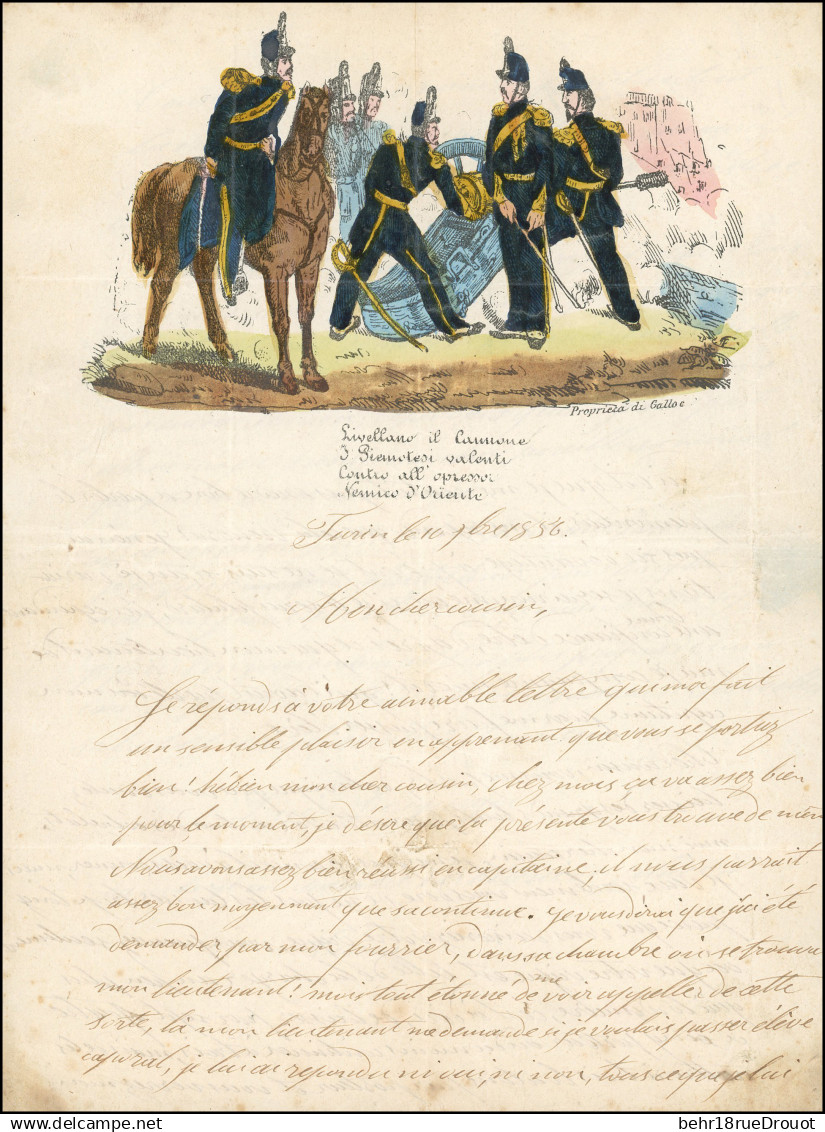 Proprietà di Galloe
Livellano il Cannone
I Piemotesi valenti
Contro all'opressor
Nemico d'Oriente
Turin le 10 7bre 1856.
Mon cher cousin,
Je réponds à votre aimable lettre qui mà fait
un sensible plaisir en apprenant que vous se portiez
bien! hébien mon cher cousin, chez mois ça va assez bien
pour le moment, je désire que la présente vous trouve de mêm
Nous avons assez bien réussi en capitaine, il nous parrait
assez bon moyennent que sa continue. Je vous dirai que j'ai été
demander par mon fourrier, dans sa chambre où se trouve
mon lieutenant! mois tout étonné de me voir appeller de cette
sorte, là mon lieutenant me demande si je voulais passer élève
caporal, je lui ai répondu ni oui, ni non, tous ce que je lui
behr18rueDrouot